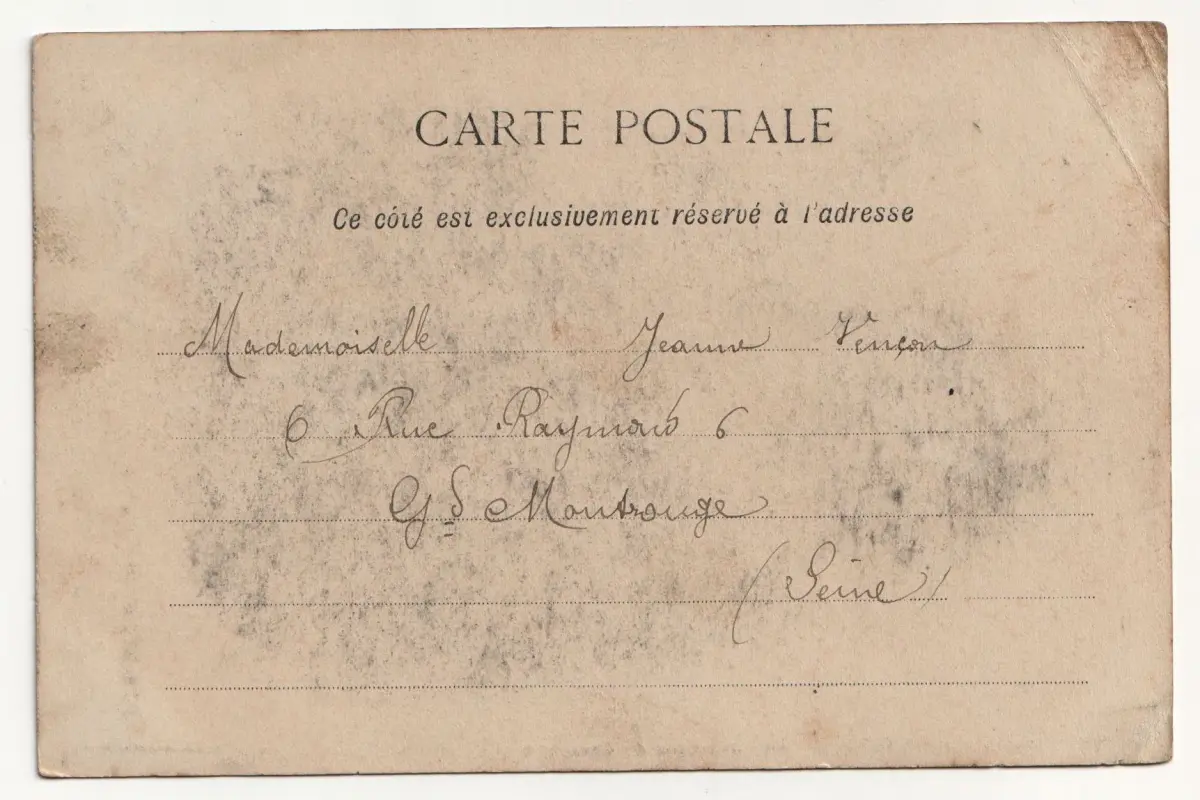 CARTE POSTALE
Ce côté est exclusivement réservé à l'adresse
Mademoiselle Jeanne Vençon
6 Rue Raymond 6
Gd Montrouge
(Seine)